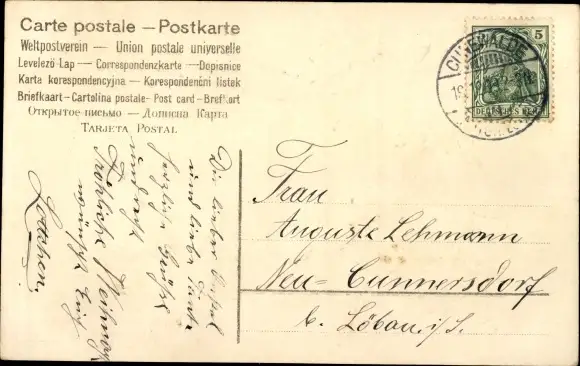 Carte postale — Postkarte
Weltpostverein — Union postale universelle
Levelező-Lap — Correspondenzkarte — Dopisnice
Karta korespondencyjna — Korespondenční lístek
Briefkaart — Cartolina postale — Post card — Brefkort
Открытое письмо — Дописна Карта
TARJETA POSTAL
5
DEUTSCHES REICH
CUNEWALDE
Frau
Auguste Lehmann
Neu-Cunnersdorf
b. Löbau i/S.
Dir lieber
und liebe Tante
herzliche Grüße
und recht
Fröhliche Weihnacht
wünscht Euch
Lottchen.